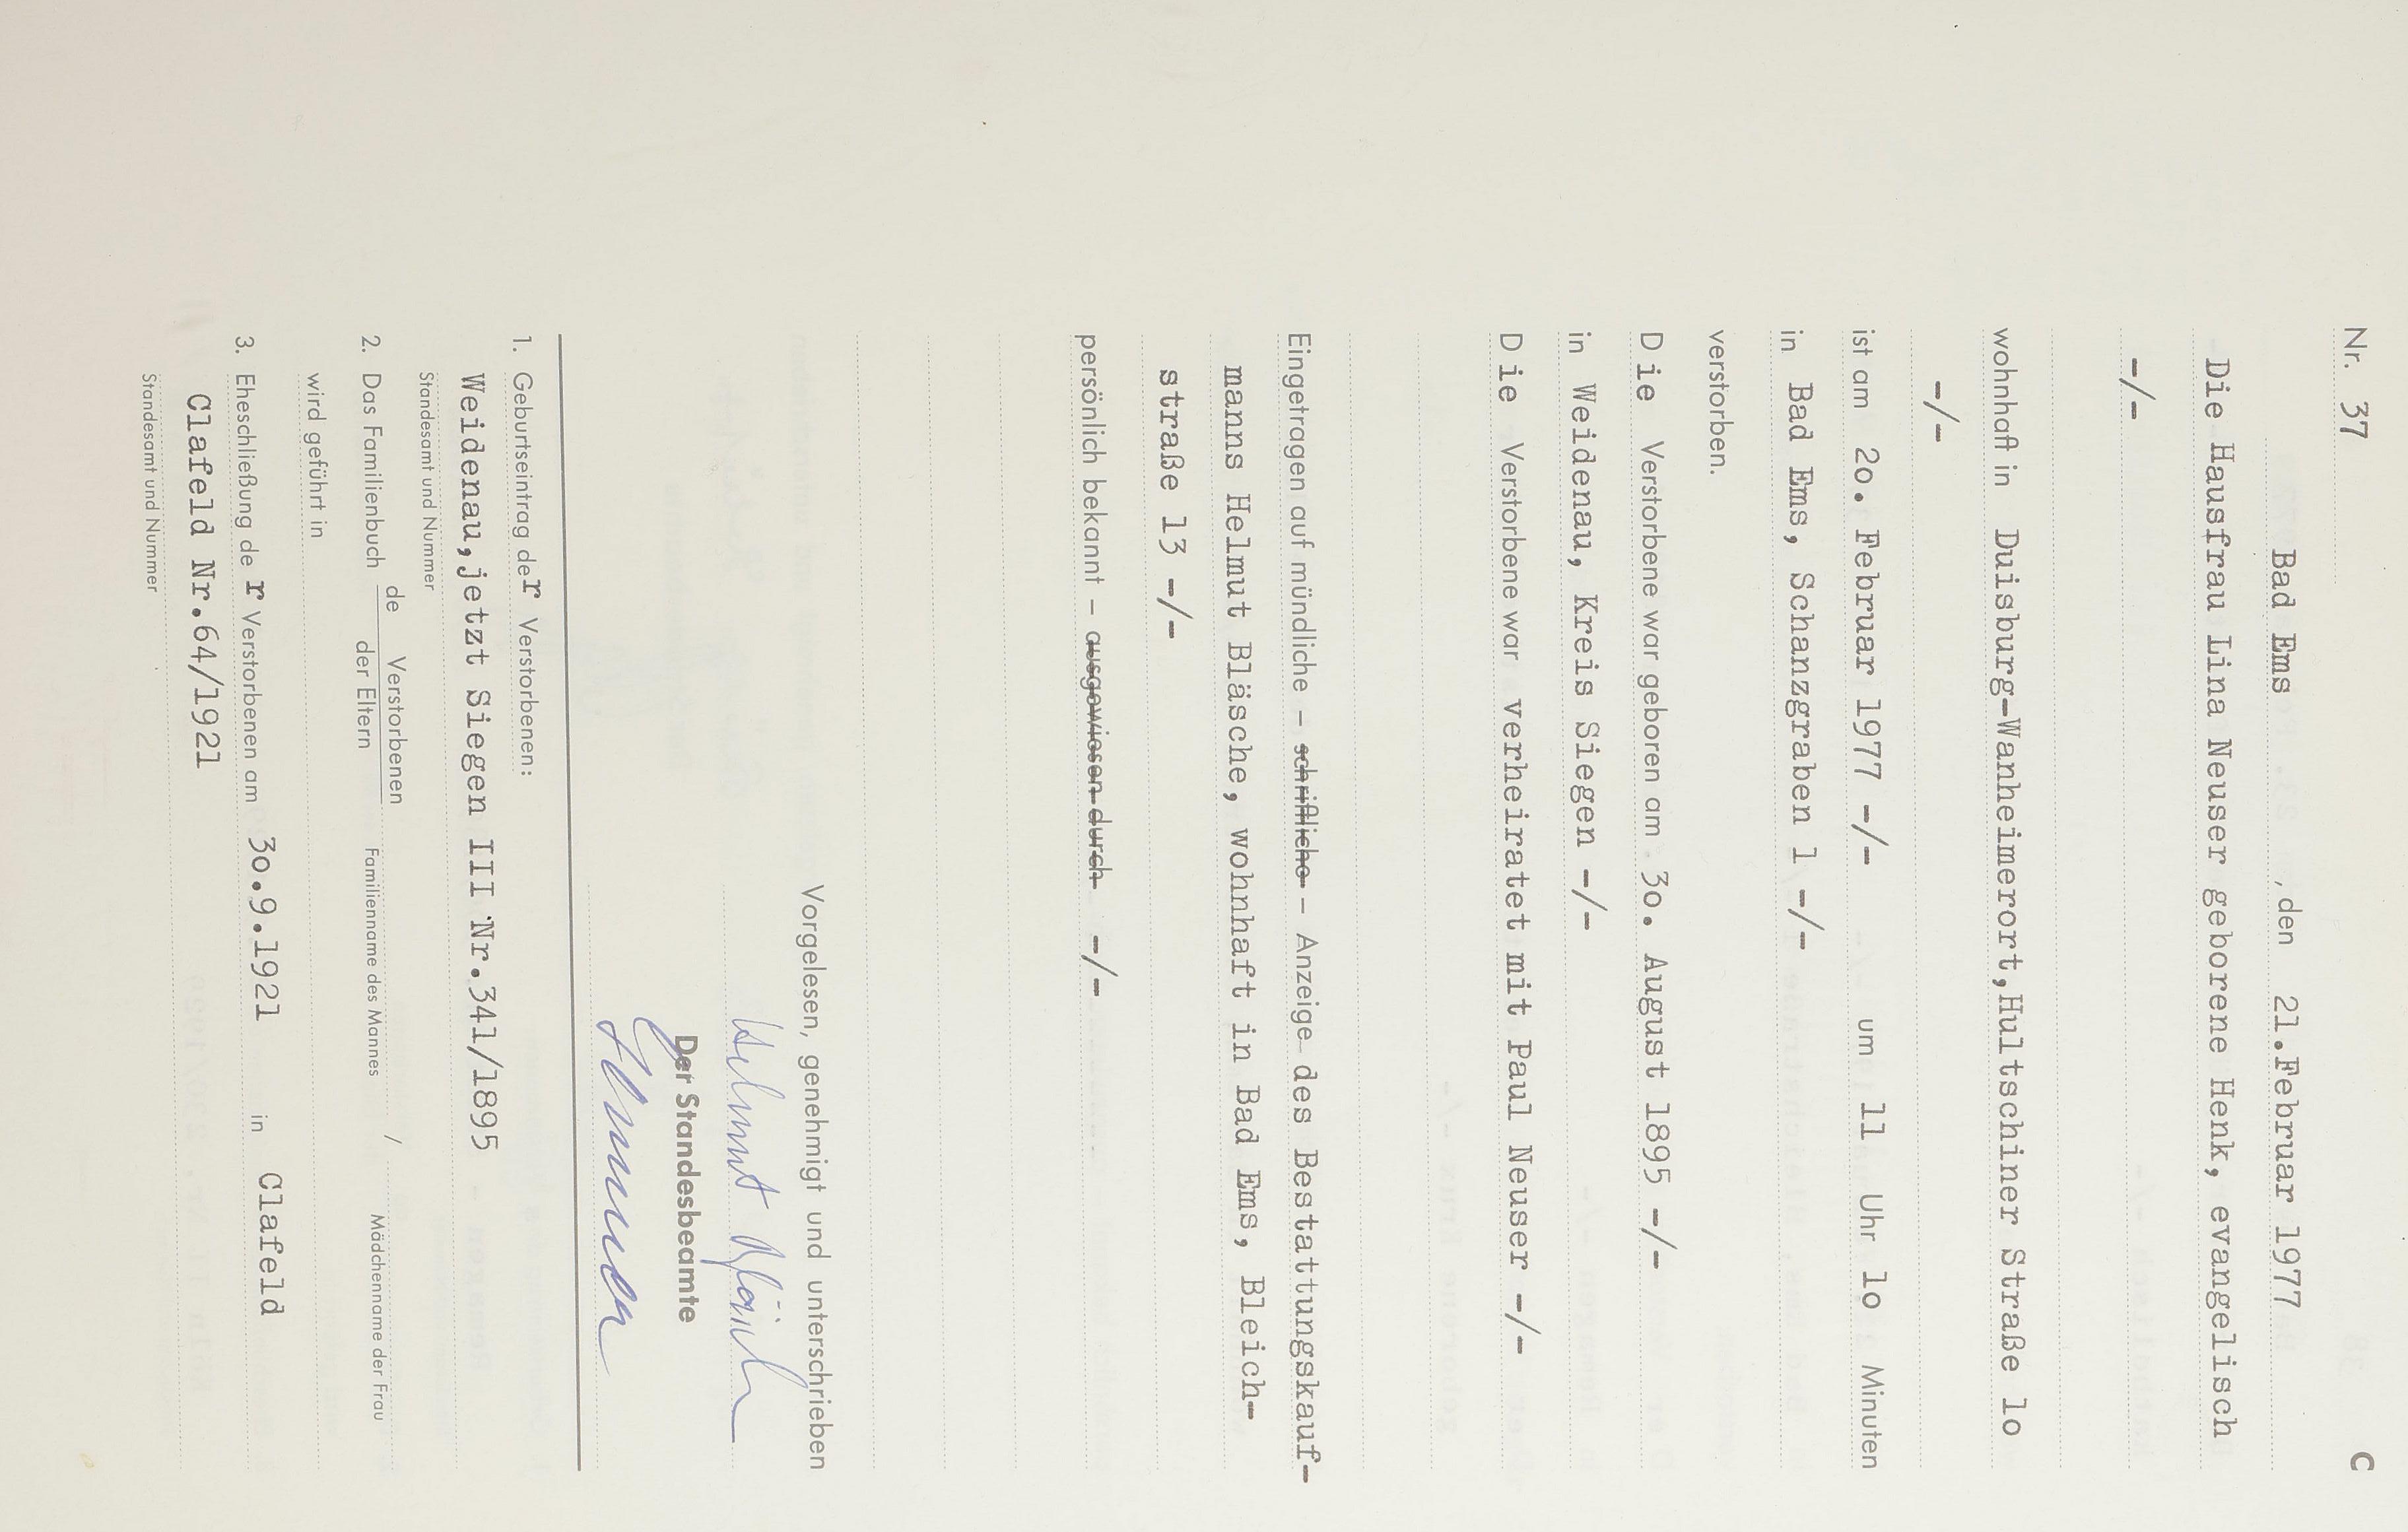 Nr. 37
C
Bad Ems, den 21.Februar 1977
Die Hausfrau Lina Neuser geborene Henk, evangelisch
-/-
wohnhaft in Duisburg-Wanheimerort,Hultschiner Straße lo
-/-
ist am 2o. Februar 1977 -/- um 11 Uhr lo Minuten
in Bad Ems, Schanzgraben 1 -/-
verstorben.
Die Verstorbene war geboren am 3o. August 1895 -/-
in Weidenau, Kreis Siegen -/-
Die Verstorbene war verheiratet mit Paul Neuser -/-
Eingetragen auf mündliche – schriftliche – Anzeige des Bestattungskauf-
manns Helmut Bläsche, wohnhaft in Bad Ems, Bleich-
straße 13 -/-
persönlich bekannt – ausgewiesen durch -/-
Vorgelesen, genehmigt und unterschrieben
Helmut Bläsche
Der Standesbeamte
1. Geburtseintrag der Verstorbenen:
Weidenau,jetzt Siegen III Nr.341/1895
Standesamt und Nummer
de Verstorbenen
2. Das Familienbuch
der Eltern
Familienname des Mannes / Mädchenname der Frau
wird geführt in
3. Eheschließung der Verstorbenen am 3o.9.1921 in Clafeld
Clafeld Nr.64/1921
Standesamt und Nummer